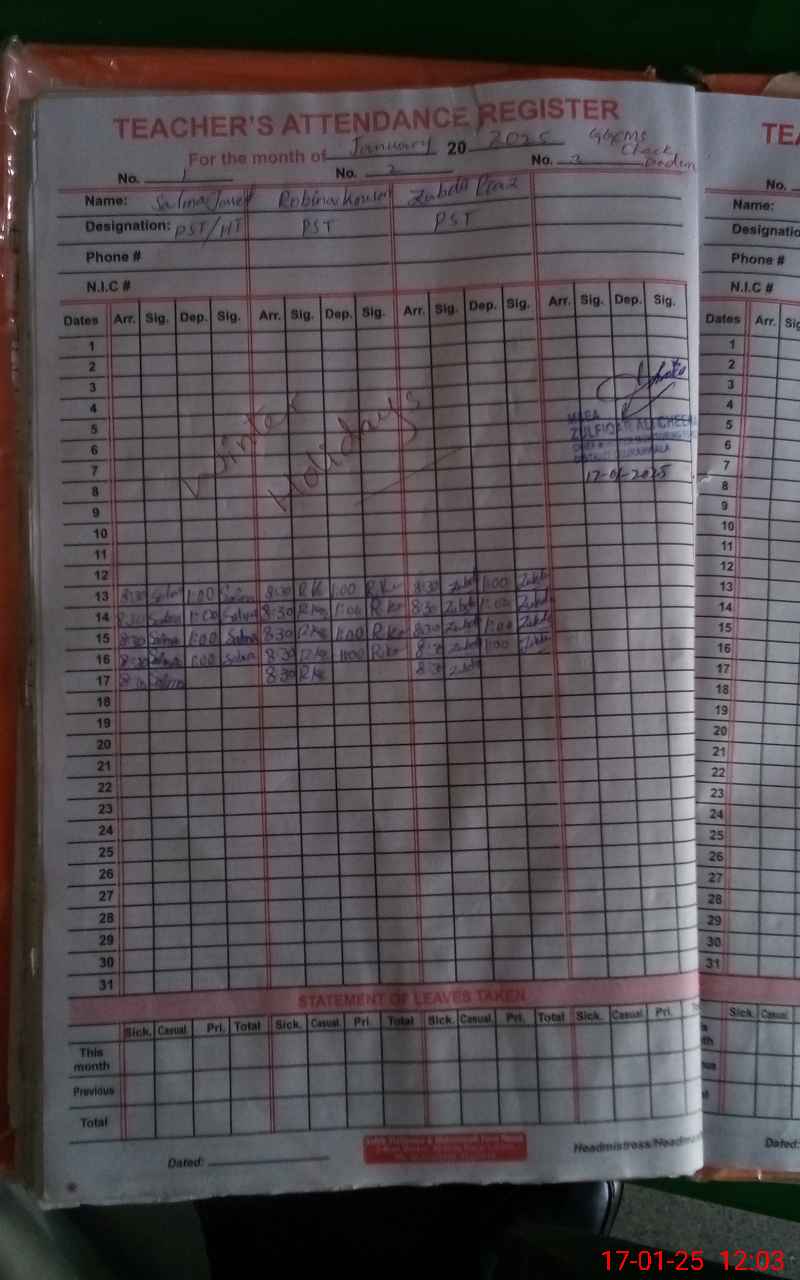 TEACHER'S ATTENDANCE REGISTER
For the month of January 20 2025 GGEMS
Chack
No. 1 No. 2 No. 3
Name: Salma Robina Kousar Zubda Riaz
Designation: PST/HT PST PST
Phone #
N.I.C #
Dates Arr. Sig. Dep. Sig. Arr. Sig. Dep. Sig. Arr. Sig. Dep. Sig. Arr. Sig. Dep. Sig.
1
2
3
4
5
6
7
8
9
10
11
12
Winter
Holidays
MAEA
ZULFIQAR ALI CHEEMA
17-01-2025
13 8:30 Salma 1:00 Salma 8:30 R.Ko 1:00 R.Ko 8:30 Zubda 1:00 Zubda
14 8:30 Salma 1:00 Salma 8:30 R.Ko 1:00 R.Ko 8:30 Zubda 1:00 Zubda
15 8:30 Salma 1:00 Salma 8:30 R.Ko 1:00 R.Ko 8:30 Zubda 1:00 Zubda
16 8:30 Salma 1:00 Salma 8:30 R.Ko 1:00 R.Ko 8:30 Zubda 1:00 Zubda
17 8:30 Salma 8:30 R.Ko 8:30 Zubda
18
19
20
21
22
23
24
25
26
27
28
29
30
31
STATEMENT OF LEAVES TAKEN
Sick. Casual. Pri. Total Sick. Casual. Pri. Total Sick. Casual. Pri. Total Sick. Casual. Pri.
This
month
Previous
Total
Dated: Headmistress/Headma
TEA
No.
Name:
Designatio
Phone #
N.I.C #
Dates Arr. Sig
1
2
3
4
5
6
7
8
9
10
11
12
13
14
15
16
17
18
19
20
21
22
23
24
25
26
27
28
29
30
31
Sick. Casual.
Dated:
17-01-25 12:03